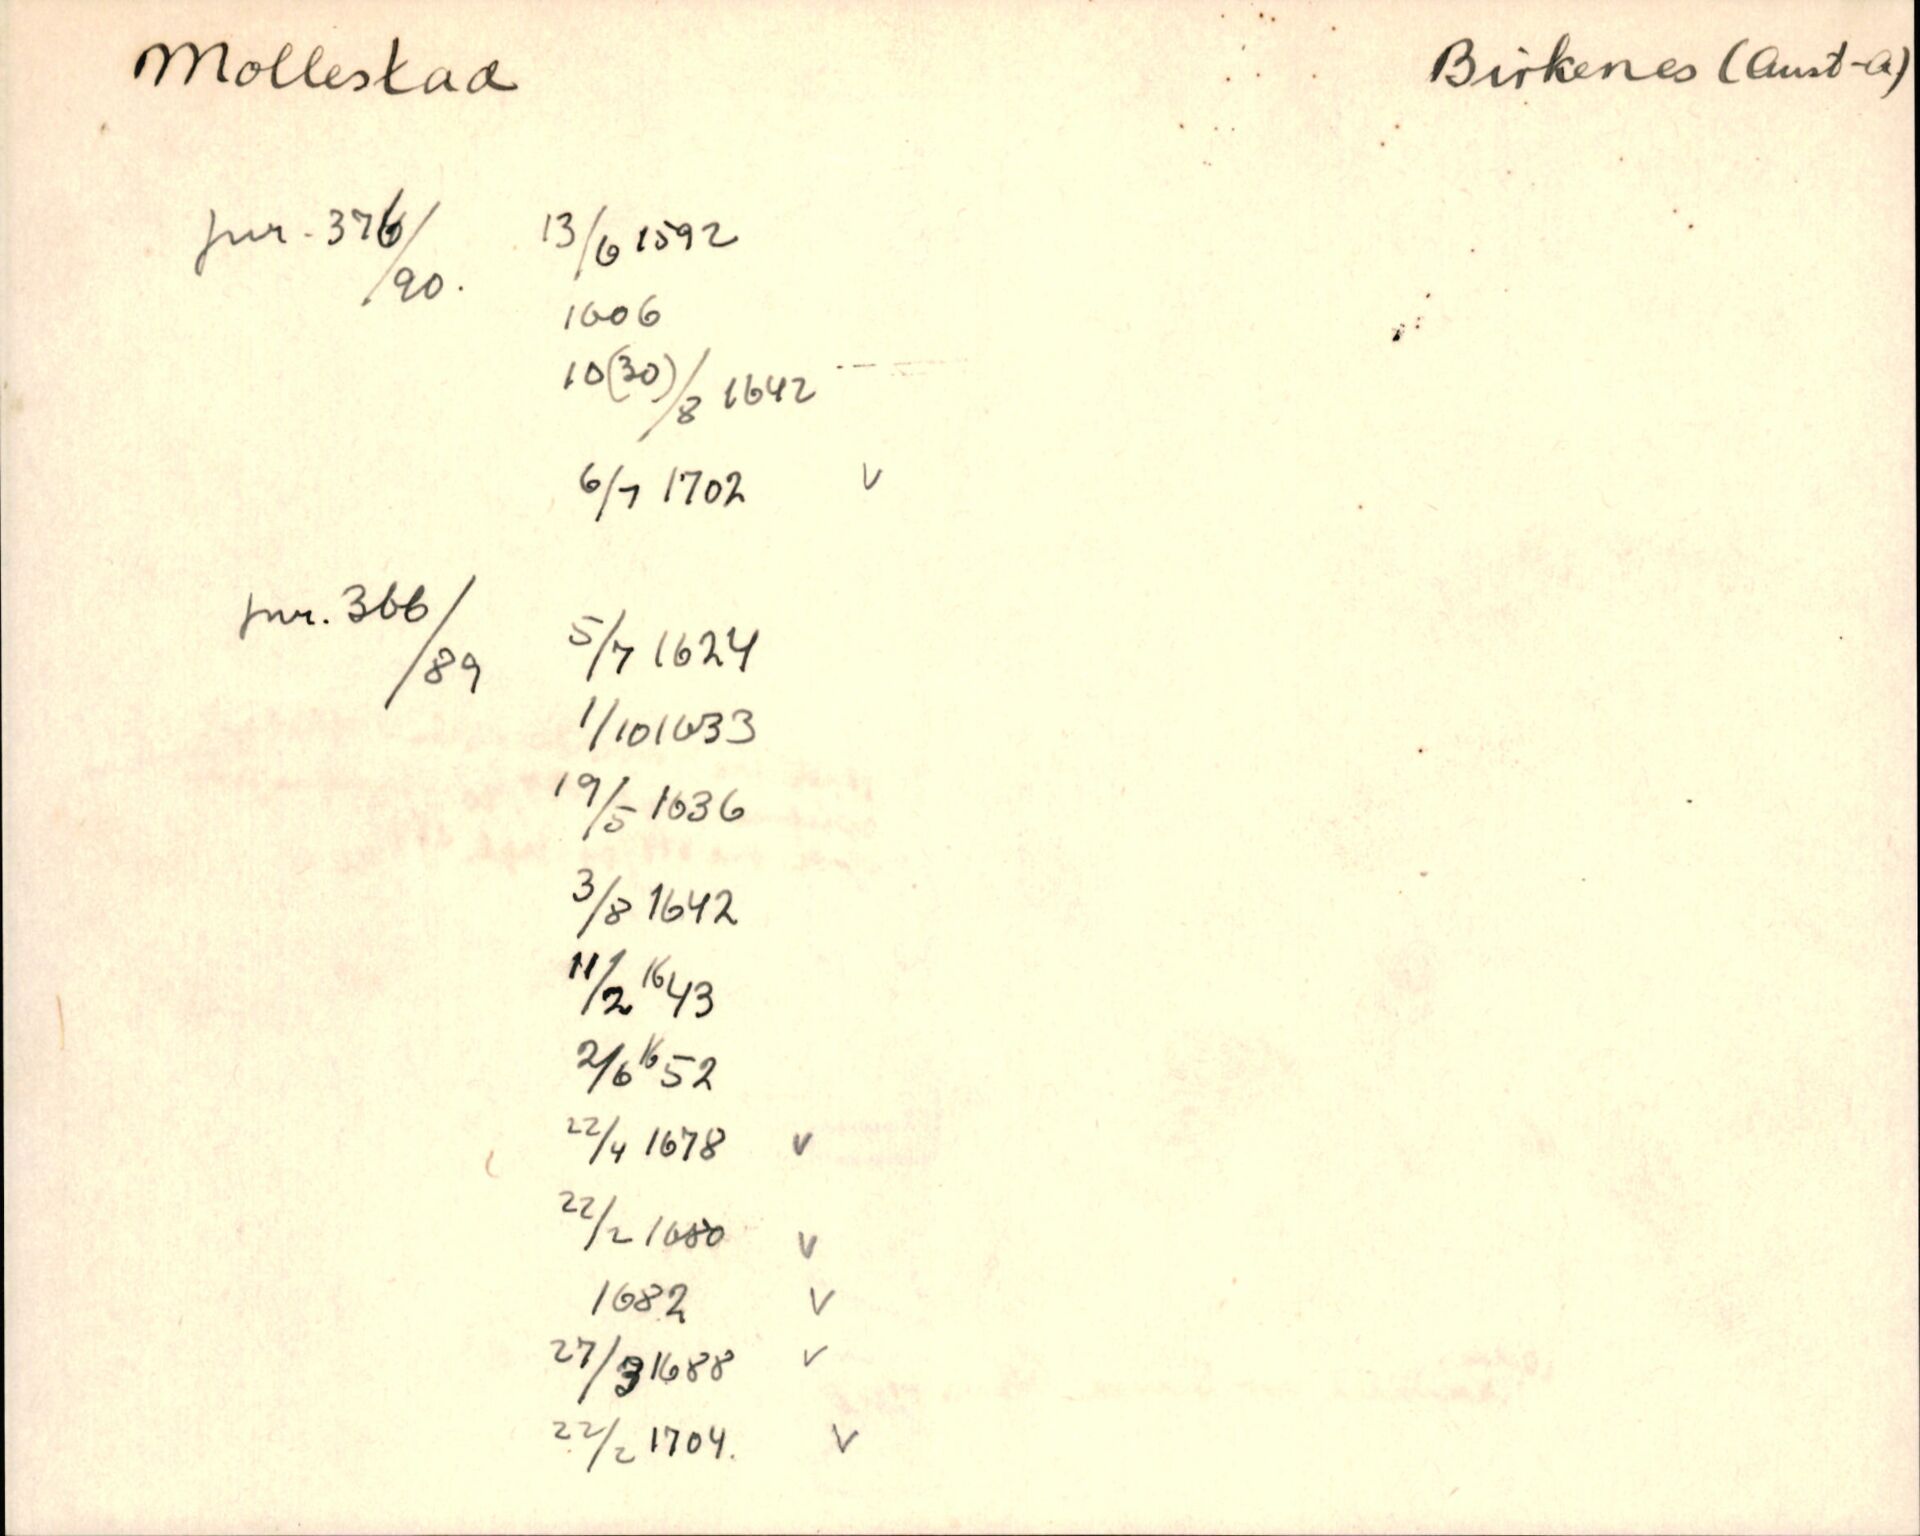 Mollestad
Birkenes (Aust-A)
jnr. 376/90.
13/6 1592
1606
10(30)/8 1642
6/7 1702 v
jnr. 366/89
5/7 1624
1/10 1633
19/5 1636
3/8 1642
11/2 1643
2/6 1652
22/4 1678 v
22/2 1680 v
1682 v
27/3 1688 v
22/2 1704. v